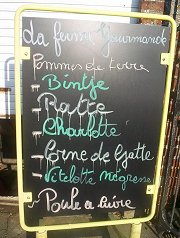 La ferme Gourmande
Pommes de terre
- Bintje
- Ratte
- Charlotte
- Corne de Gatte
- Vitelotte négresse
- Poule a cuire